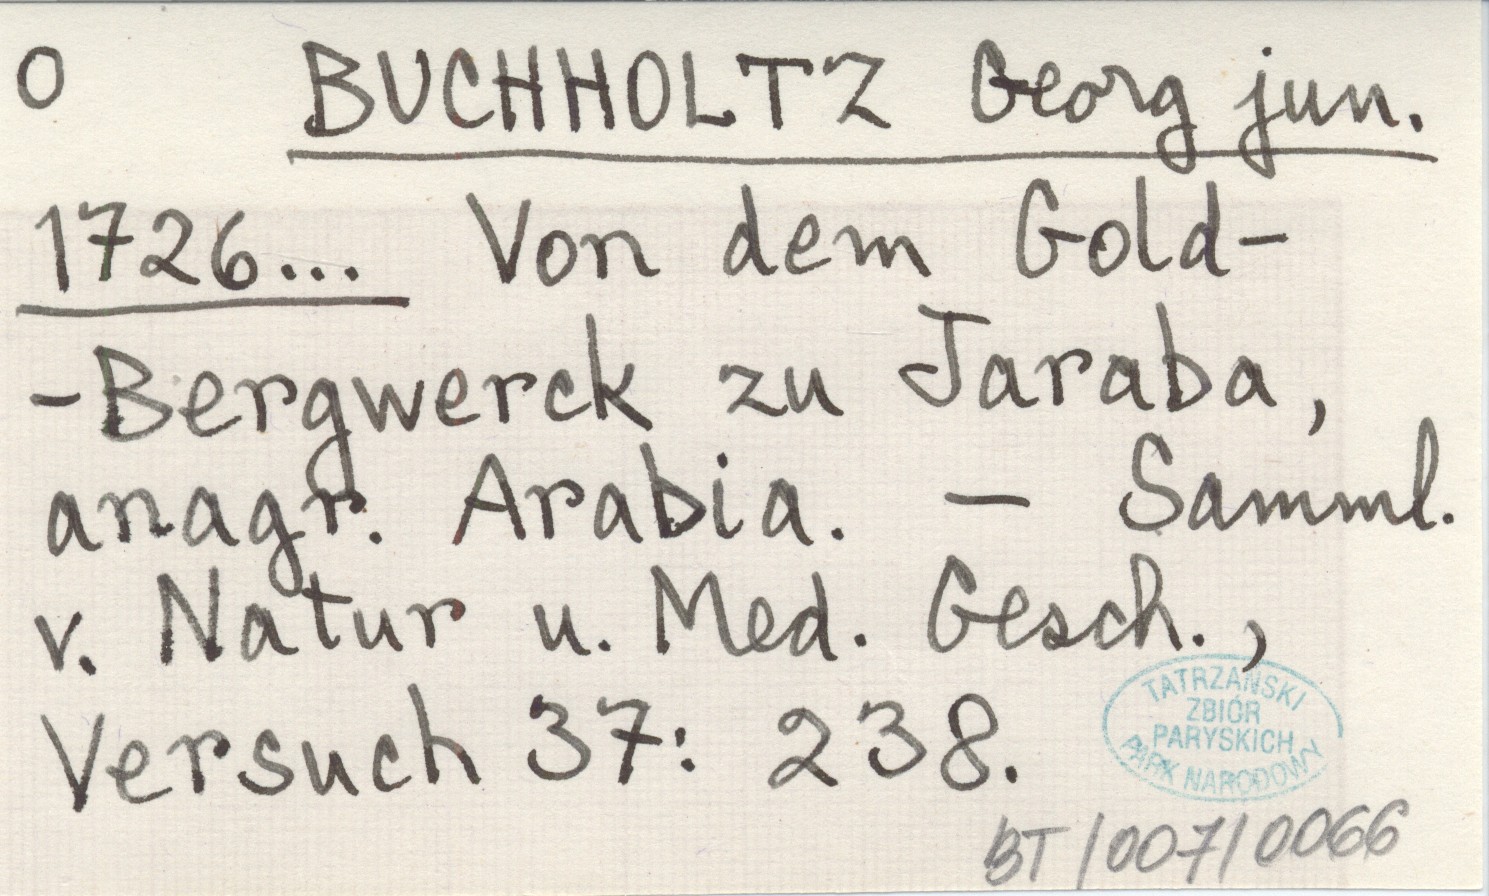 O BUCHHOLTZ Georg jun.
1726... Von dem Gold-
-Bergwerck zu Jaraba,
anagr. Arabia. — Samml.
v. Natur u. Med. Gesch.,
Versuch 37: 238.
TATRZAŃSKI
ZBIÓR
PARYSKICH
PARK NARODOWY
BT/007/0066